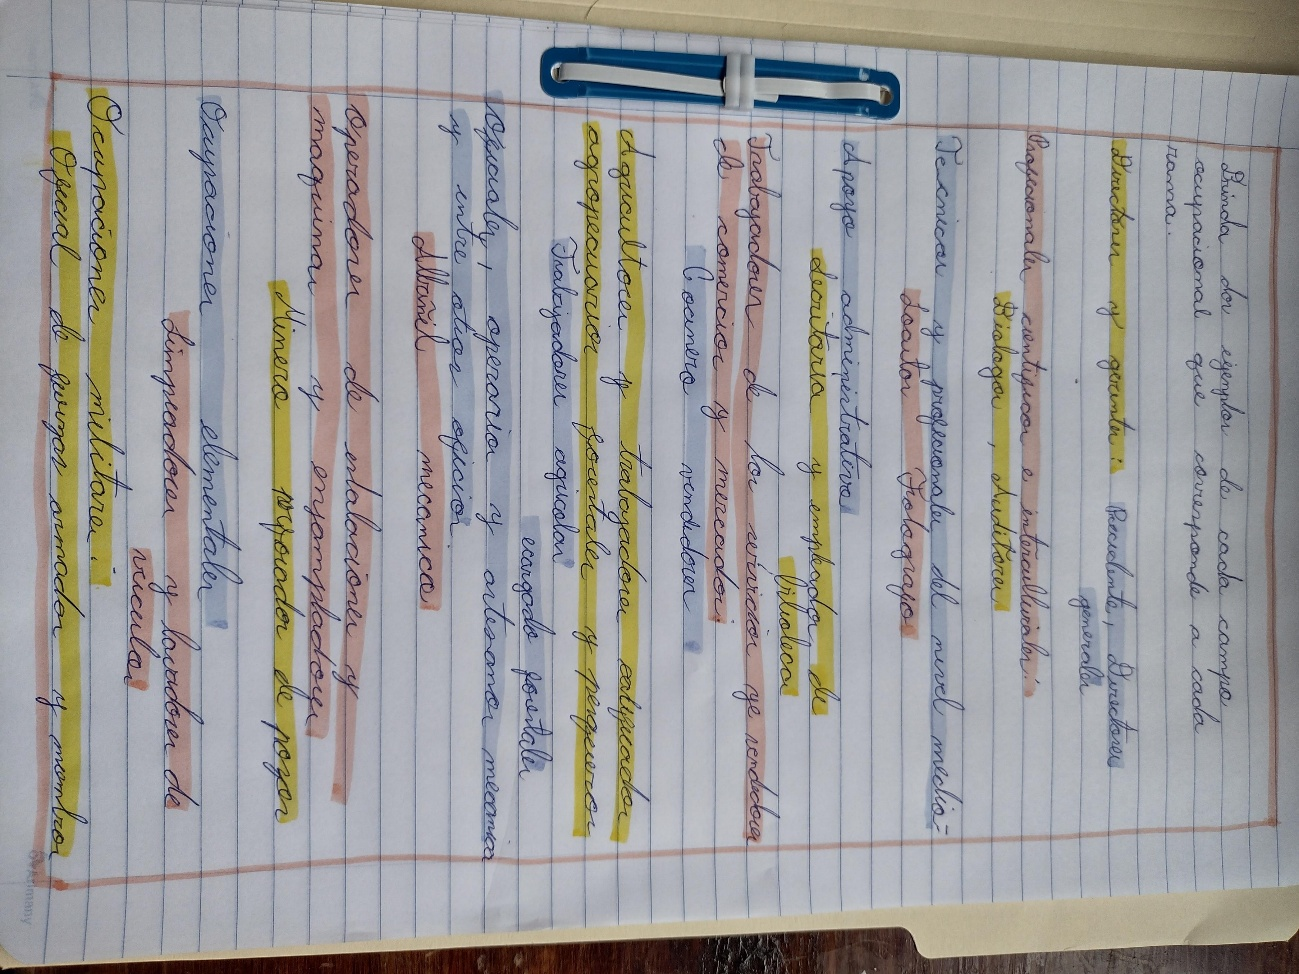 Brinda dos ejemplos de cada campo
ocupacional que corresponde a cada
rama.
Directores y gerentes: Presidente, Directores
generales
Profesionales cientificos e intelectuales:
Biologo, Auditores
Tecnicos y profesionales del nivel medio-
Locutor Fotografo
Apoyo administrativo
Secretaria y empleados de
Biblioteca
Trabajadores de los servicios y vendedores
de comercios y mercados:
Cocinero vendedores
Agricultores y trabajadores calificados
agropecuarios forestales y pesqueros
Trabajadores agicolas
ecargado forestales
Oficiales, operarios y artesanos mecanica
y entre otros oficios:
Albañil mecanico
Operadores de intalaciones y
maquinas y ensambladores
Mineros de pozos
Ocupaciones elementales
Limpiadores y lavadores de
viculos
Ocupaciones militares:
Oficial de fuerzas armadas y membros